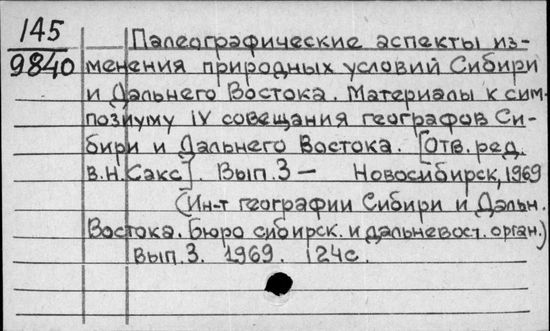 145
9840
Палеографические аспекты из-
менения природных условий Сибири
и Дальнего Востока. Материалы к сим-
позиуму IV совещания географов Си-
бири и Дальнего Востока. [Отв. ред.
В.Н. Сакс]. Вып. 3 — Новосибирск, 1969
(Ин-т географии Сибири и Дальн.
Востока. Бюро сибирск. и дальневост. орган.)
Вып. 3. 1969. 124с.